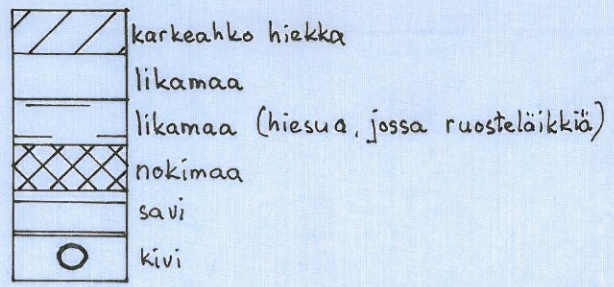 karkeahko hiekka
likamaa
likamaa (hiesua, jossa ruosteläikkiä)
nokimaa
savi
kivi